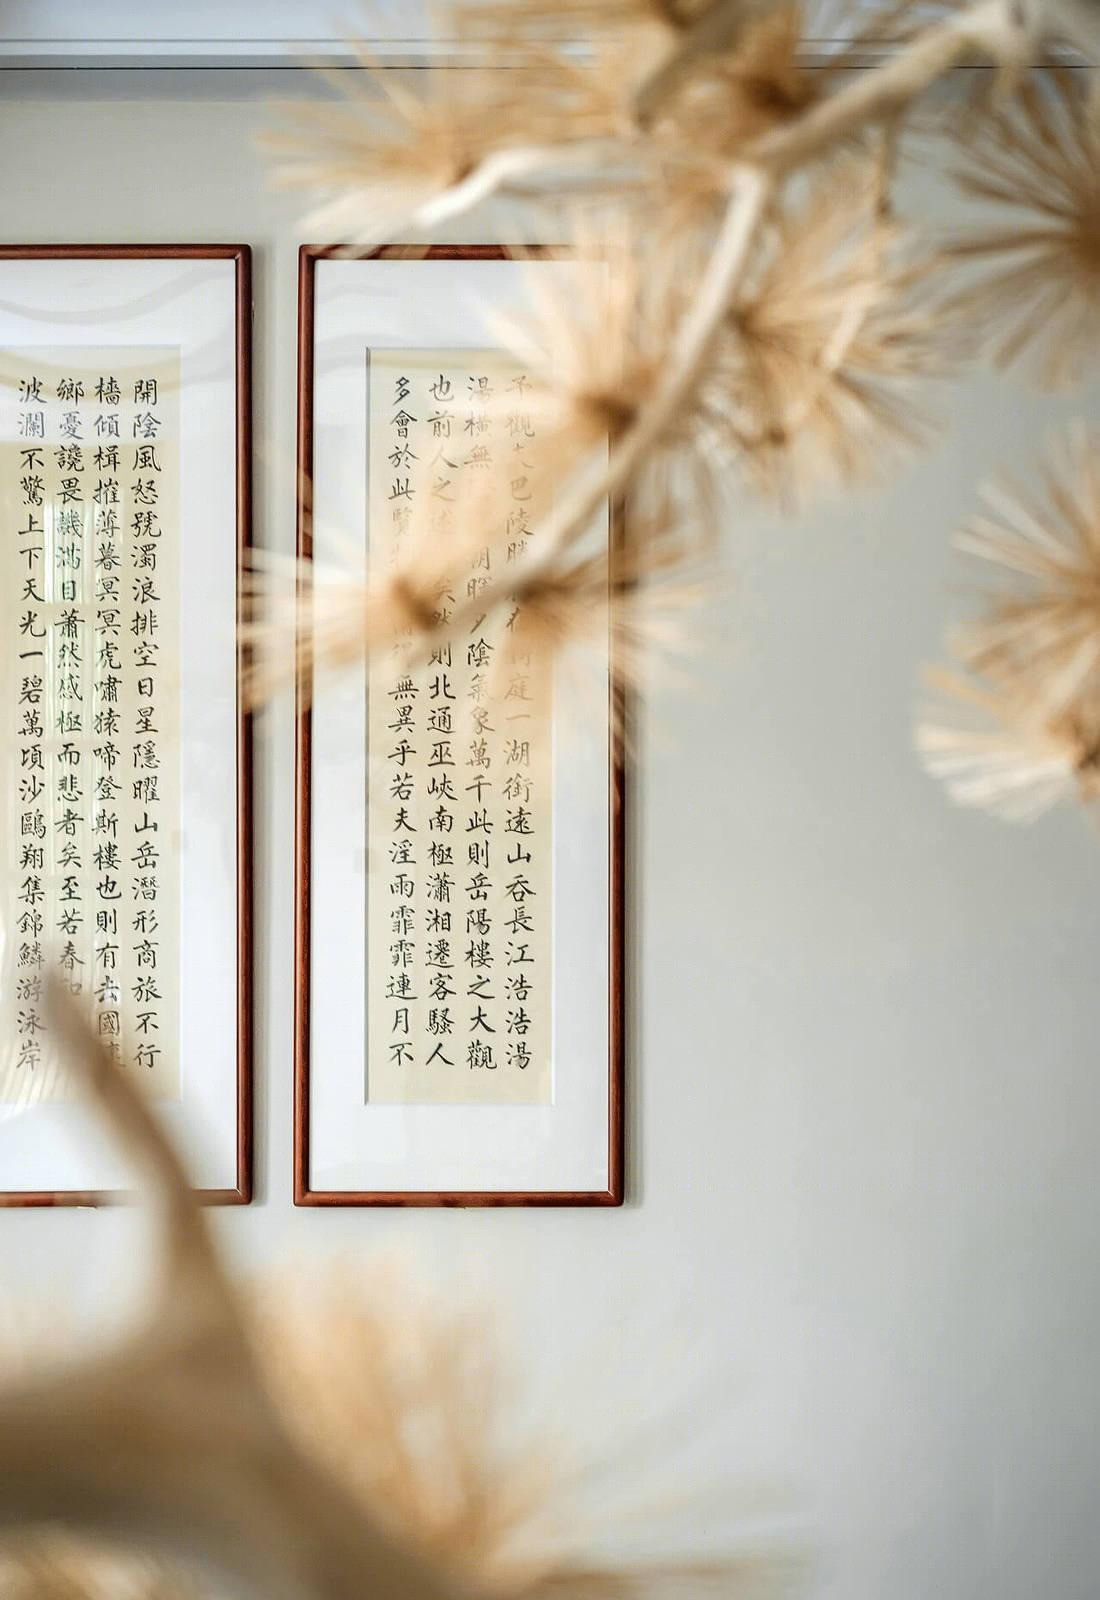 予觀夫巴陵勝 庭一湖銜遠山吞長江浩浩湯
湯橫無 朝暉夕陰氣象萬千此則岳陽樓之大觀
也前人之述 矣然則北通巫峽南極瀟湘遷客騷人
多會於此覽 無異乎若夫淫雨霏霏連月不
開陰風怒號濁浪排空日星隱曜山岳潛形商旅不行
檣傾楫摧薄暮冥冥虎嘯猿啼登斯樓也則有去國
鄉憂讒畏譏滿目蕭然感極而悲者矣至若春和
波瀾不驚上下天光一碧萬頃沙鷗翔集錦鱗游泳岸